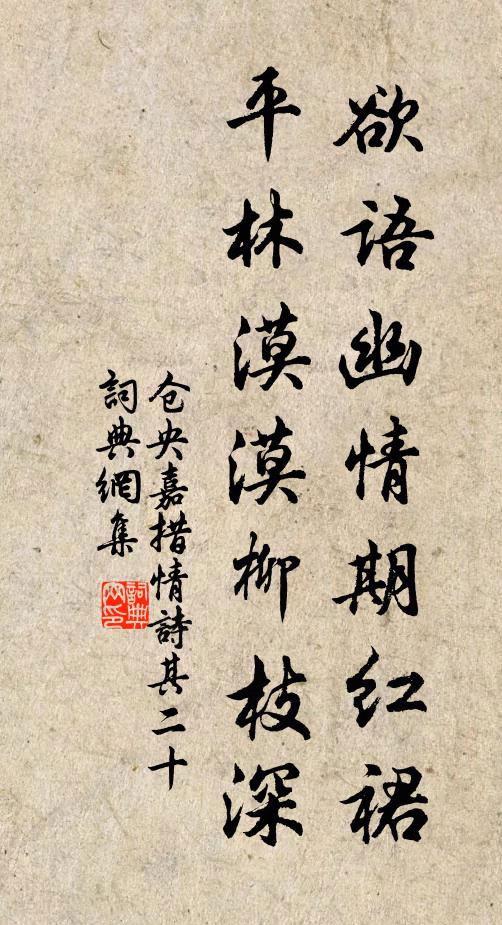 欲语幽情期红裙
平林漠漠柳枝深
仓央嘉措情詩其二十
詞典網集
詞典
网印